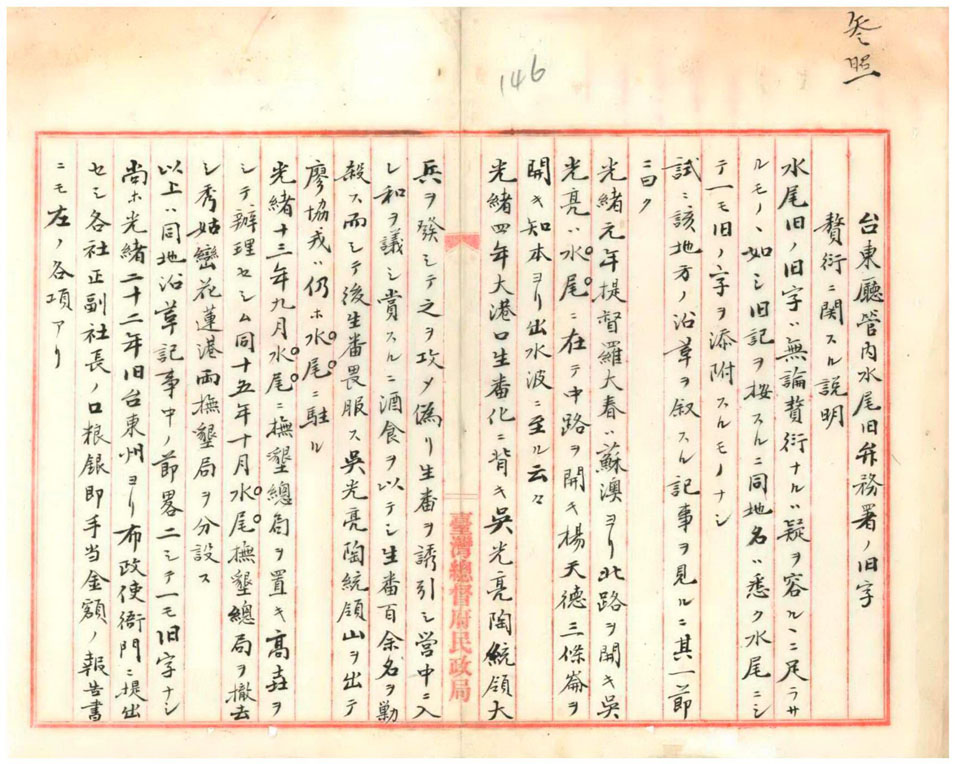 参照
146
台東廳管内水尾旧弁務署ノ旧字
贅衍ニ関スル説明
水尾旧ノ旧字ハ無論贅衍ナルハ疑ヲ容ルヽニ足ラサ
ルモノヽ如シ旧記ヲ按スルニ同地名ハ悉ク水尾ニシ
テ一モ旧ノ字ヲ添附スルモノナシ
試ニ該地方ノ沿革ヲ叙スル記事ヲ見ルニ其一節
ニ曰ク
光緒元年提督羅大春ハ蘇澳ヨリ北路ヲ開キ吳
光亮ハ水尾ニ在テ中路ヲ開キ楊天德三條崙ヲ
開キ知本ヨリ出水波ニ至ル云々
光緒四年大港口生番化ニ背キ吳光亮陶統領大
兵ヲ發シテ之ヲ攻メ偽リ生番ヲ誘引シ営中ニ入
レ和ヲ議シ賞スルニ酒食ヲ以テシ生番百余名ヲ勦
殺ス而シテ後生番畏服ス吳光亮陶統領山ヲ出テ
廖協戎ハ仍ホ水尾ニ駐ル
光緒十三年九月水尾ニ撫墾總局ヲ置キ高垚ヲ
シテ辦理セシム同十五年十月水尾撫墾總局ヲ撤去
シ秀姑巒花蓮港両撫墾局ヲ分設ス
以上ハ同地沿革記事中ノ節畧ニシテ一モ旧字ナシ
尚ホ光緒二十二年旧台東州ヨリ布政使衙門ニ提出
セシ各社正副社長ノ口粮銀即手当金額ノ報告書
ニモ左ノ各項アリ
臺灣總督府民政局